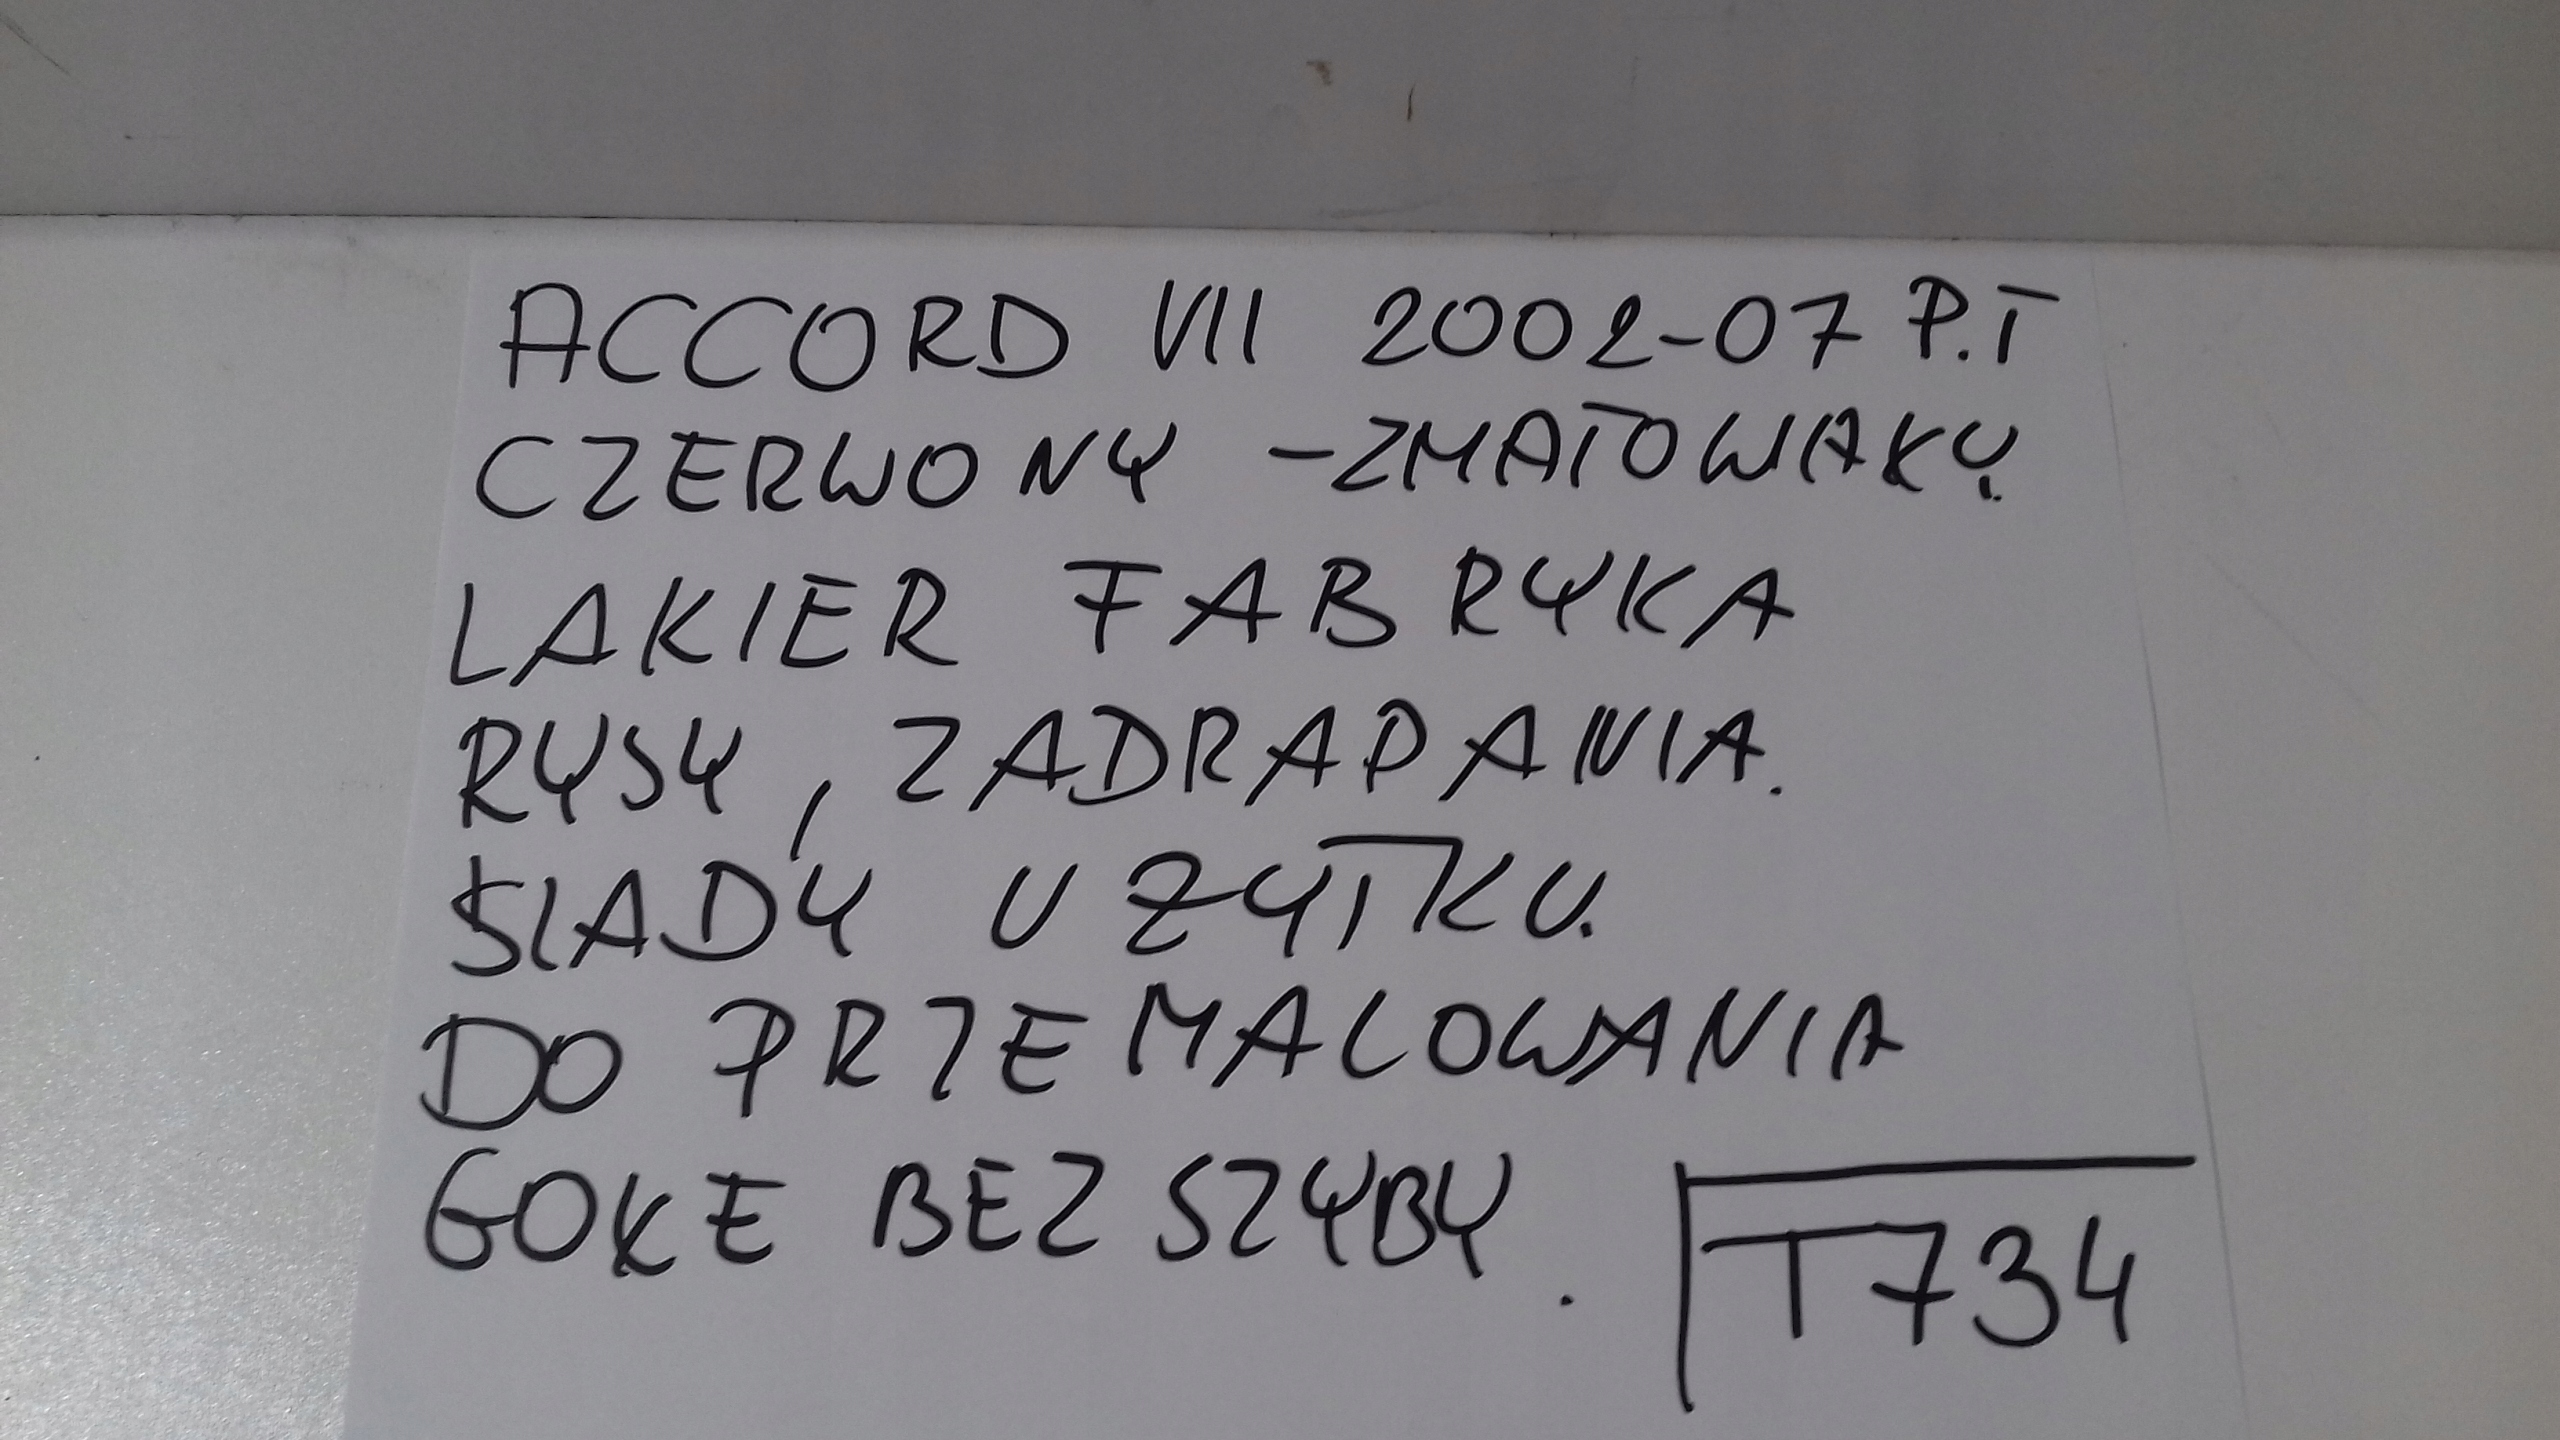 ACCORD VII 2002-07 P.T
CZERWONY -ZMATOWAKY.
LAKIER FABRYKA
RYSY, ZADRAPANIA.
ŚLADY UZYTKU.
DO PRZEMALOWANIA
GOKE BEZ SZYBY.
T734